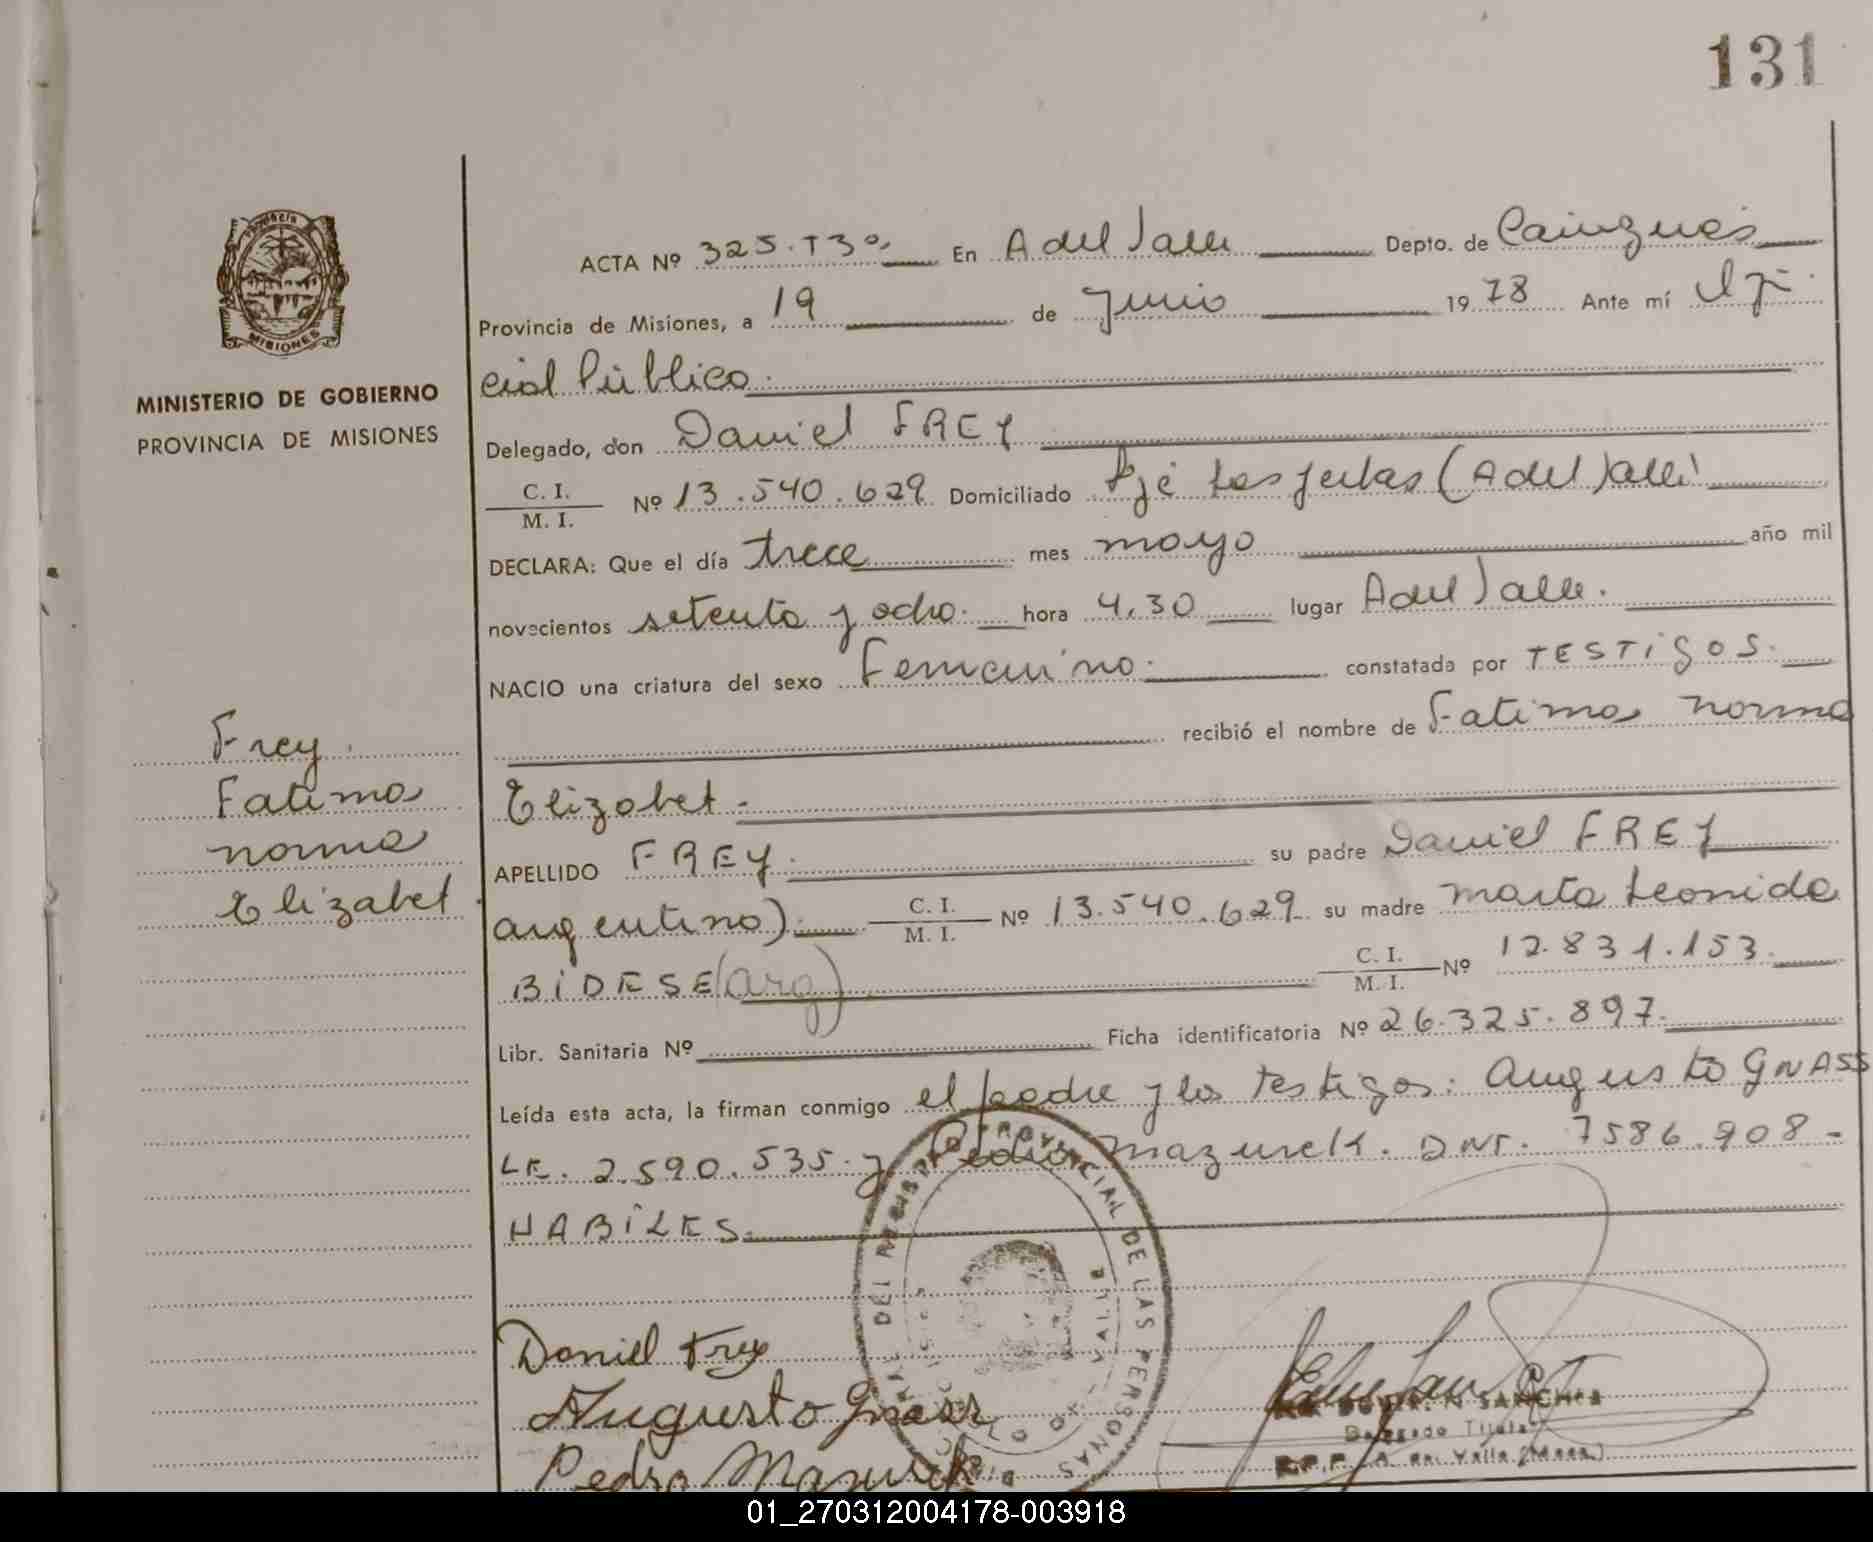 131
ACTA Nº 325.T3º En A del Valle Depto. de Cainguás
Provincia de Misiones, a 19 de Junio 1978 Ante mí Ofi
cial Público.
MINISTERIO DE GOBIERNO
PROVINCIA DE MISIONES
Delegado, don Daniel FREY
C. I.
M. I.
Nº 13.540.629 Domiciliado Pje Las Yerbas (A del Valle)
DECLARA: Que el día trece mes mayo año mil
novecientos setenta y ocho. hora 4.30 lugar A del Valle.
NACIO una criatura del sexo Femenino. constatada por TESTIGOS.
recibió el nombre de Fatima Norma
Elizabet.
Frey.
Fatima
Norma
Elizabet.
APELLIDO FREY. su padre Daniel FREY
argentino). C. I.
M. I.
Nº 13.540.629 su madre Marta Leonida
BIDESE (arg) C. I.
M. I.
Nº 12.831.153.
Libr. Sanitaria Nº Ficha identificatoria Nº 26.325.897.
Leída esta acta, la firman conmigo el padre y los testigos: Augusto GNASS
LE. 2.590.535. y Pedro Mazurek. DNI. 7586.908-
HABILES.
Daniel Frey
Augusto Gnass
Pedro Mazurek
PROVINCIAL DE LAS PERSONAS
SANCHEZ
Delegado Titular
01_270312004178-003918